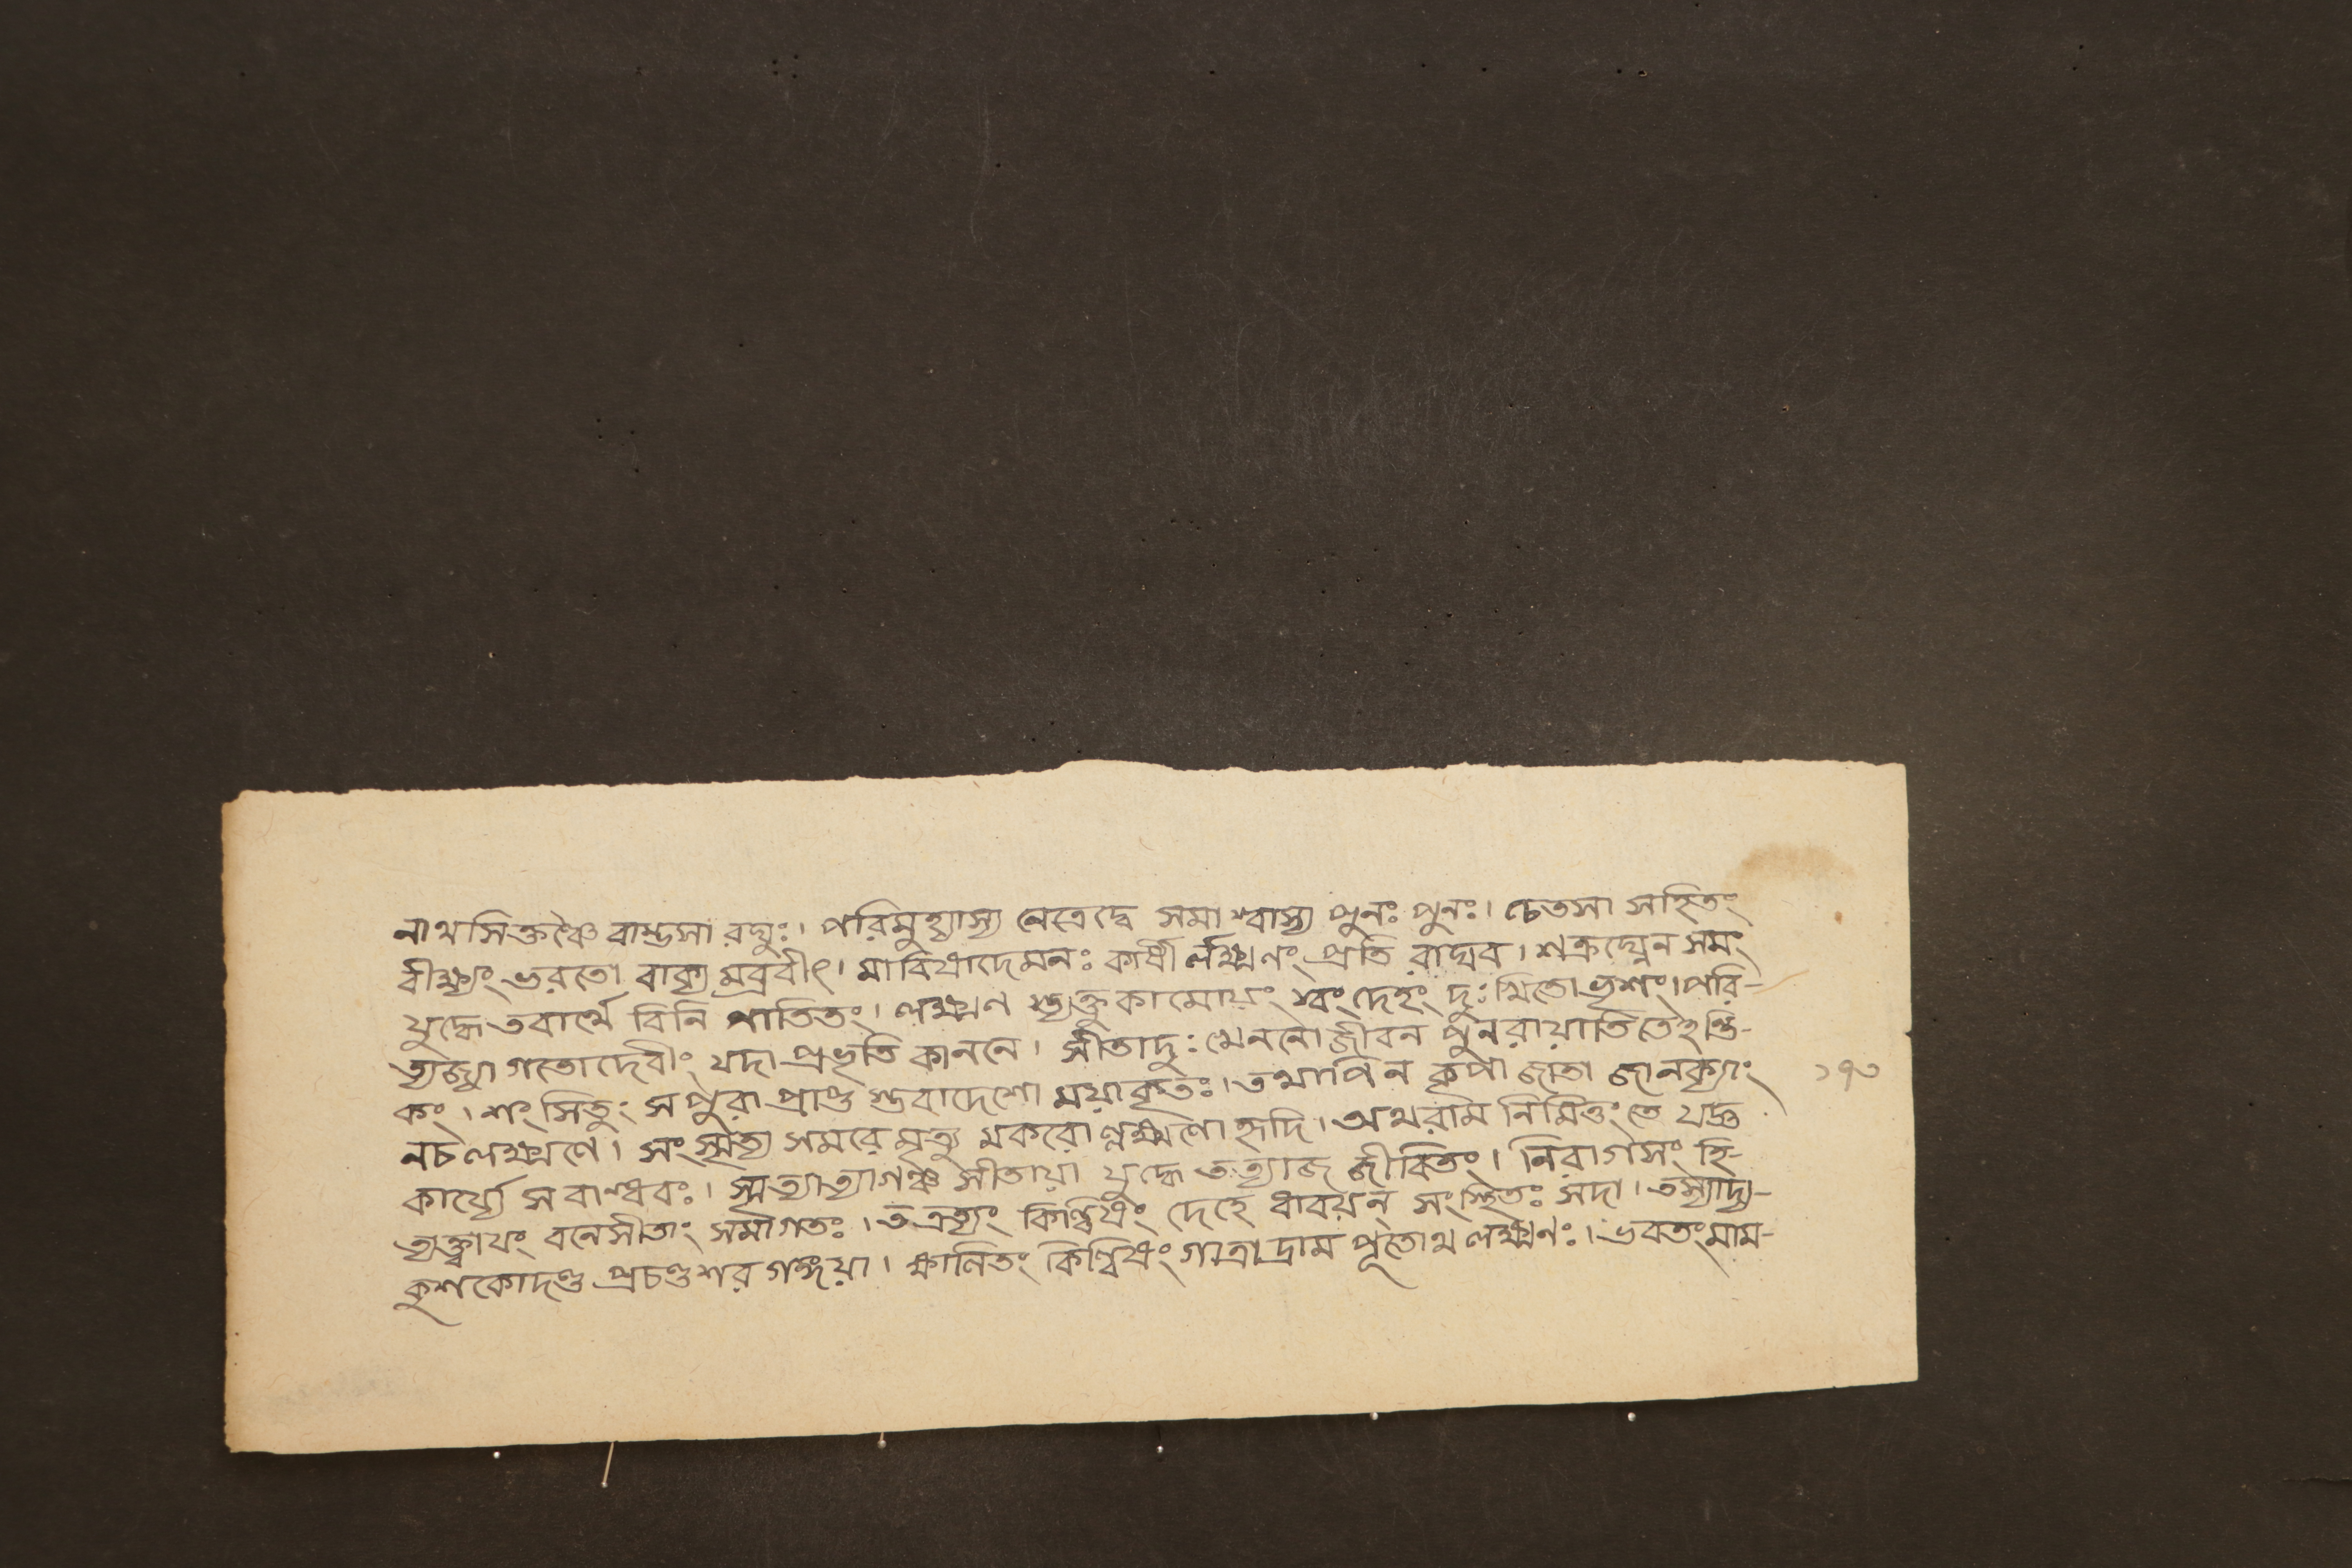 নাথসিক্তশ্চৈ বাম্ভসা রঘুঃ। পরিমুহ্যাস্য নেত্রেদ্বে সমাশ্বাস্য পুনঃ পুনঃ। চেতসা সহিতং
বীক্ষ্যং ভরতো বাক্য মব্রবীৎ। মাবিষাদেমনঃ কার্ষী র্লক্ষ্মণং প্রতি রাঘব। শত্রুঘ্নেন সমং
যুদ্ধে তবার্থে বিনি পাতিতং। লক্ষ্মণ স্ত্যক্তু কামোয়ং স্বং দেহং দুঃখিতো ভৃশং। পরি-
ত্যজ্য গতো দেবীং যদা প্রভৃতি কাননে। সীতাদুঃখেননো জীবন পুনরায়াতিতেহন্তি-
কং। শংসিতুং স পুরা প্রাপ্ত স্তবাদেশো ময়াকৃতঃ। তথাপি ন কৃপা জাতা জানক্যাং
নচ লক্ষ্মণে। সংস্মৃত্য সমরে মৃত্যু মকরো ল্লক্ষ্মণো হৃদি। অথরাম নিমিত্তং তে যদ্ভু
কার্য্যে স বান্ধবঃ। স্মৃত্যাত্যাগঞ্চ সীতায়া যুদ্ধে তত্যাজ জীবিতং। নিরাগসং হি-
ত্যক্ত্বায়ং বনেসীতাং সমাগতঃ। তত্রত্যং কিল্বিষং দেহে ধারয়ন্ সংস্থিতঃ সদা। তস্যাদ্য-
কুশকোদণ্ড প্রচণ্ডশর গঙ্গয়া। ক্ষালিতং কিল্বিষং গাত্রাদ্রাম পূতোথ লক্ষ্মণঃ। ভবতং মাম-
১৭৩